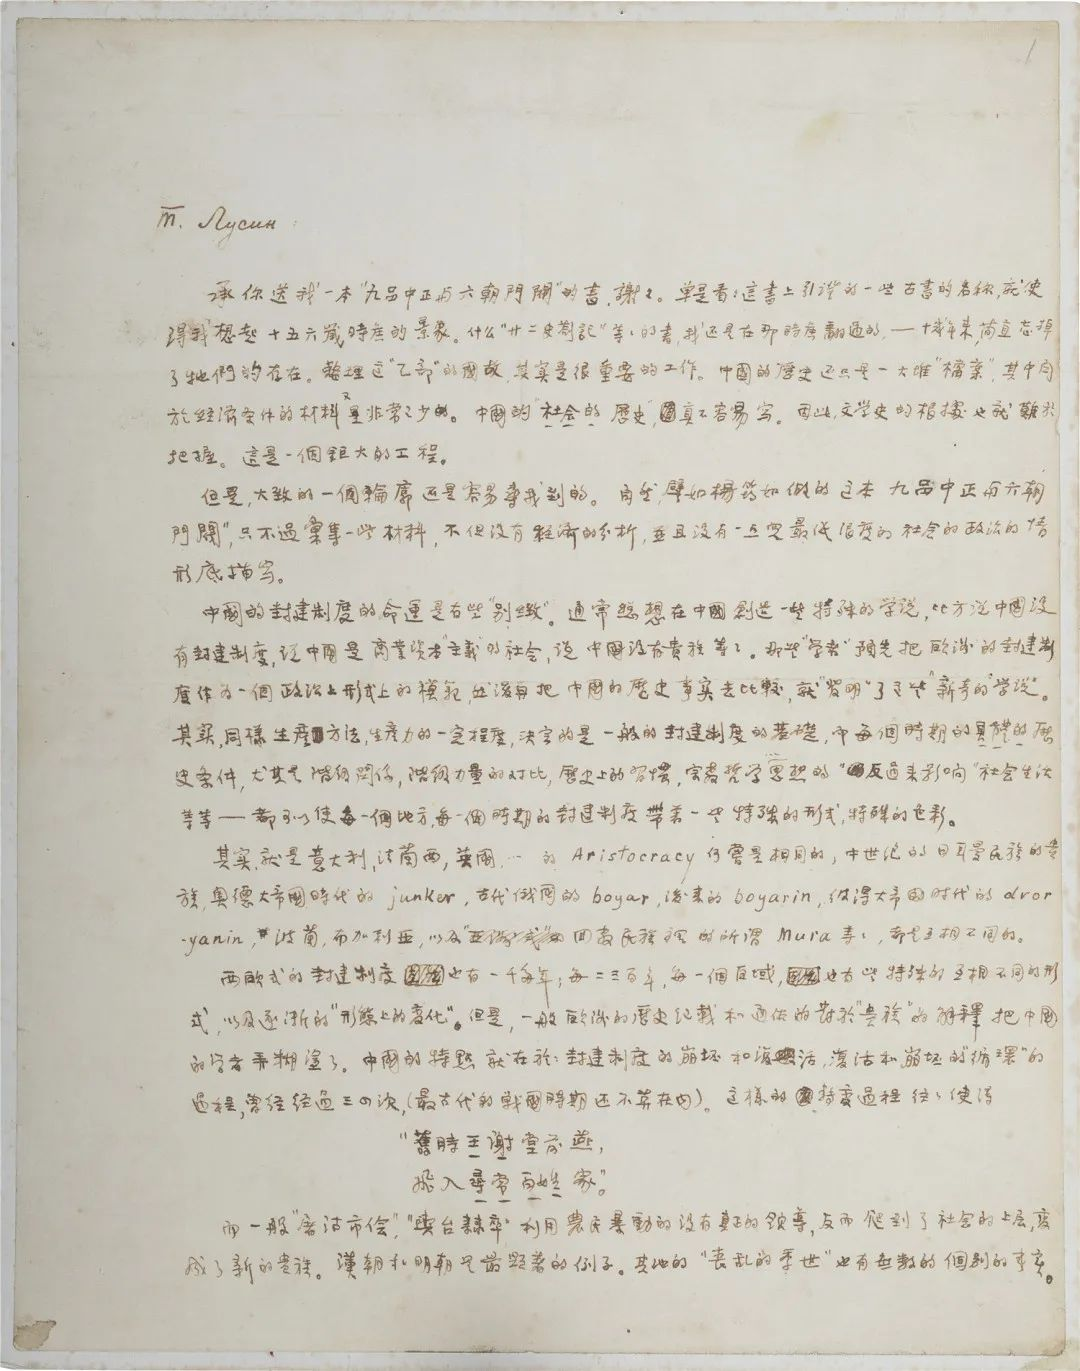 1
Т. Лусин:
承你送我一本"九品中正与六朝門閥"的書,謝々。單是看々這書上引證的一些古書的名称,就使
得我想起十五六歲時候的景象。什么"廿二史劄記"等々的書,我还是在那時候翻過的。——十幾年来,簡直忘掉
了牠們的存在。整理这"乙部"的國故,其实是很重要的工作。中國的歷史还只是一大堆"檔案",其中关
於經濟条件的材料又是非常之少的。中國的"社会的歷史",真不容易写。因此,文学史的根據也就難於
把握。這是一個鉅大的工程。
但是,大致的一個輪廓还是容易尋找到的。自然,譬如楊筠如做的这本"九品中正与六朝
門閥",只不過彙集一些材料,不但没有經濟的分析,並且没有一点兒最低限度的社会的政治的情
形底描写。
中國的封建制度的命運是有些"别緻"。通常總想在中國創造一些特殊的学说,比方说中國没
有封建制度,说中國是商業資本"主義"的社会,说中國没有貴族等々。那些"学者"預先把欧洲的封建制
度作为一個政治上形式上的模範,然後再把中國的歷史事实去比較,就"發明"了这些"新奇的"学说"。
其实,同樣生產方法,生產力的一定程度,决定的是一般的封建制度的基礎,而每個時期的具體的歷
史条件,尤其是階級関係,階級力量的对比,歷史上的習慣,宗教哲学思想的"反過来影响"社会生活
等等——都可以使每一個地方,每一個時期的封建制度帶着一些特殊的形式,特殊的色彩。
其实,就是意大利,法蘭西,英國…的 Aristocracy 何嘗是相同的,中世纪的日耳曼民族的貴
族,奥德大帝國時代的 junker,古代俄國的 boyar,後来的 boyarin,彼得大帝國时代的 dvor
-yanin,波蘭,布加利亚,以及回教民族裡的所谓 Mura 等々,都是互相不同的。
西欧式的封建制度也有一千多年;每二三百年,每一個区域,也有些特殊的互相不同的形
式,以及逐渐的"形態上的变化"。但是,一般欧洲的歷史记载和通俗的对於"貴族"的解釋把中國
的学者弄糊塗了。中國的特點就在於:封建制度的崩坏和復活,復活和崩坏的"循環"的
過程,曾经经過三四次,(最古代的戰國時期还不算在内)。这樣的特变過程往々使得
"舊時王謝堂前燕,
飛入尋常百姓家"。
而一般"屠沽市侩","輿台隸卒"利用農民暴動的没有真正的領導,反而爬到了社会的上层,变
成了新的貴族。漢朝和明朝是最顯著的例子。其他的"丧乱的季世"也有無数的個别的事实。